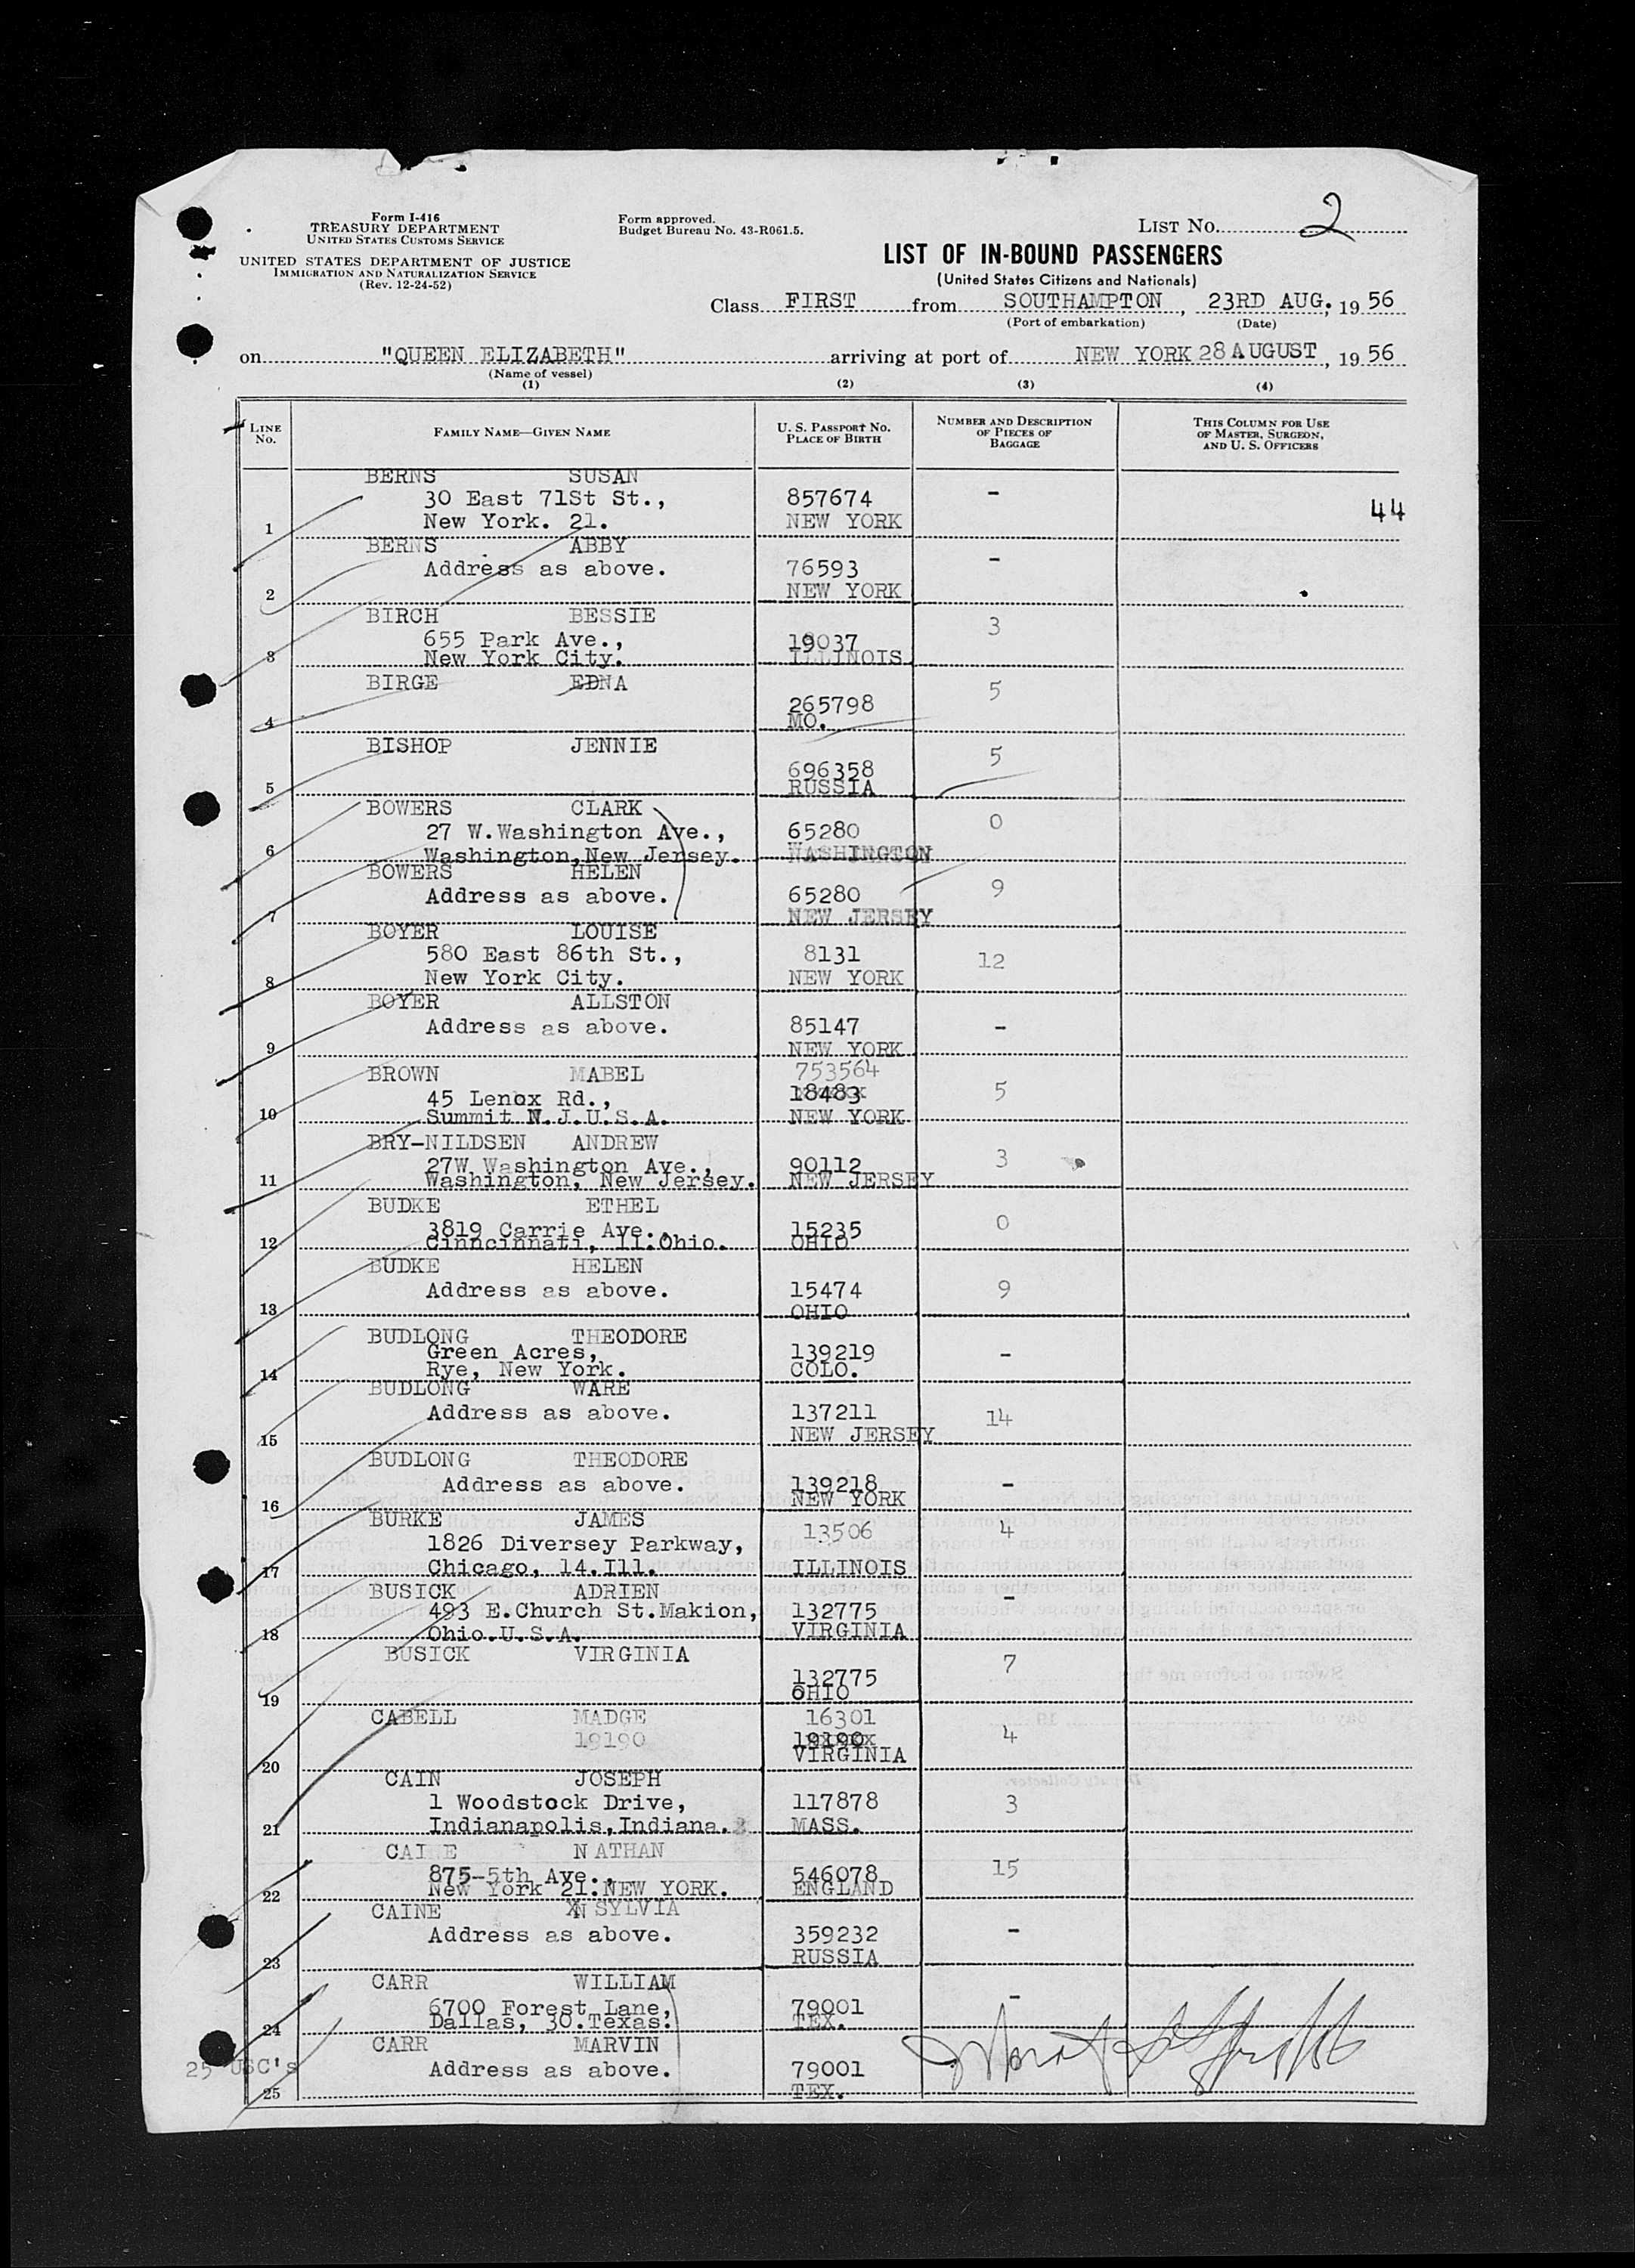 Form I-416
TREASURY DEPARTMENT
UNITED STATES CUSTOMS SERVICE
UNITED STATES DEPARTMENT OF JUSTICE
IMMIGRATION AND NATURALIZATION SERVICE
(Rev. 12-24-52)
Form approved.
Budget Bureau No. 43-R061.5.
LIST No. 2
LIST OF IN-BOUND PASSENGERS
(United States Citizens and Nationals)
Class FIRST from SOUTHAMPTON, 23RD AUG. 19 56
(Port of embarkation) (Date)
on "QUEEN ELIZABETH" arriving at port of NEW YORK 28 AUGUST, 19 56
(Name of vessel)
(1) (2) (3) (4)
LINE No. FAMILY NAME—GIVEN NAME U. S. PASSPORT NO. PLACE OF BIRTH NUMBER AND DESCRIPTION OF PIECES OF BAGGAGE THIS COLUMN FOR USE OF MASTER, SURGEON, AND U. S. OFFICERS
BERNS SUSAN
30 East 71St St., 857674 - 44
1 New York. 21. NEW YORK
BERNS ABBY
Address as above. 76593 -
2 NEW YORK
BIRCH BESSIE 3
655 Park Ave., 19037
3 New York City. ILLINOIS
BIRGE EDNA 5
265798
4 MO.
BISHOP JENNIE 5
696358
5 RUSSIA
BOWERS CLARK 0
27 W.Washington Ave., 65280
6 Washington,New Jersey. WASHINGTON
BOWERS HELEN 9
Address as above. 65280
7 NEW JERSEY
BOYER LOUISE
580 East 86th St., 8131 12
8 New York City. NEW YORK
BOYER ALLSTON
Address as above. 85147 -
9 NEW YORK
BROWN MABEL 753564
45 Lenox Rd., 18483 5
10 Summit N.J.U.S.A. NEW YORK
BRY-NILDSEN ANDREW 3
27W Washington Ave., 90112
11 Washington, New Jersey. NEW JERSEY
BUDKE ETHEL 0
3819 Carrie Ave., 15235
12 Cinncinnati, 11.Ohio. OHIO
BUDKE HELEN
Address as above. 15474 9
13 OHIO
BUDLONG THEODORE
Green Acres, 139219 -
14 Rye, New York. COLO.
BUDLONG WARE
Address as above. 137211 14
15 NEW JERSEY
BUDLONG THEODORE
Address as above. 139218 -
16 NEW YORK
BURKE JAMES 13506 4
1826 Diversey Parkway,
17 Chicago, 14.Ill. ILLINOIS
BUSICK ADRIEN -
493 E.Church St.Makion, 132775
18 Ohio.U.S.A. VIRGINIA
BUSICK VIRGINIA 7
132775
19 OHIO
CABELL MADGE 16301
19190 19190 4
20 VIRGINIA
CAIN JOSEPH
1 Woodstock Drive, 117878 3
21 Indianapolis,Indiana. MASS.
CAI E NATHAN
875-5th Ave., 546078 15
22 New York 21.NEW YORK. ENGLAND
CAINE SYLVIA
Address as above. 359232 -
23 RUSSIA
CARR WILLIAM -
6700 Forest Lane, 79001
24 Dallas, 30.Texas. TEX.
CARR MARVIN
25 USC's Address as above. 79001
25 TEX.